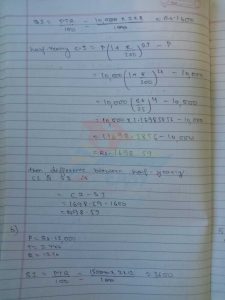 SI = PTR/100 = 10,000×2×8/100 = Rs. 1600
half-yearly C.I = P(1 + R/200)^2T - P
= 10,000(1 + 8/200)^4 - 10,000
= 10,000(26/25)^4 - 10,000
= 10,000 × 1.16985856 - 10,000
= 11698.5856 - 10,000
= Rs. 1698.59
then difference between half yearly
CI & SI is
= CI - SI
= 1698.59 - 1600
= 98.59
b)
P = Rs 15,000
T = 2
R = 12%
SI = PTR/100 = 15000×2×12/100 = 3600